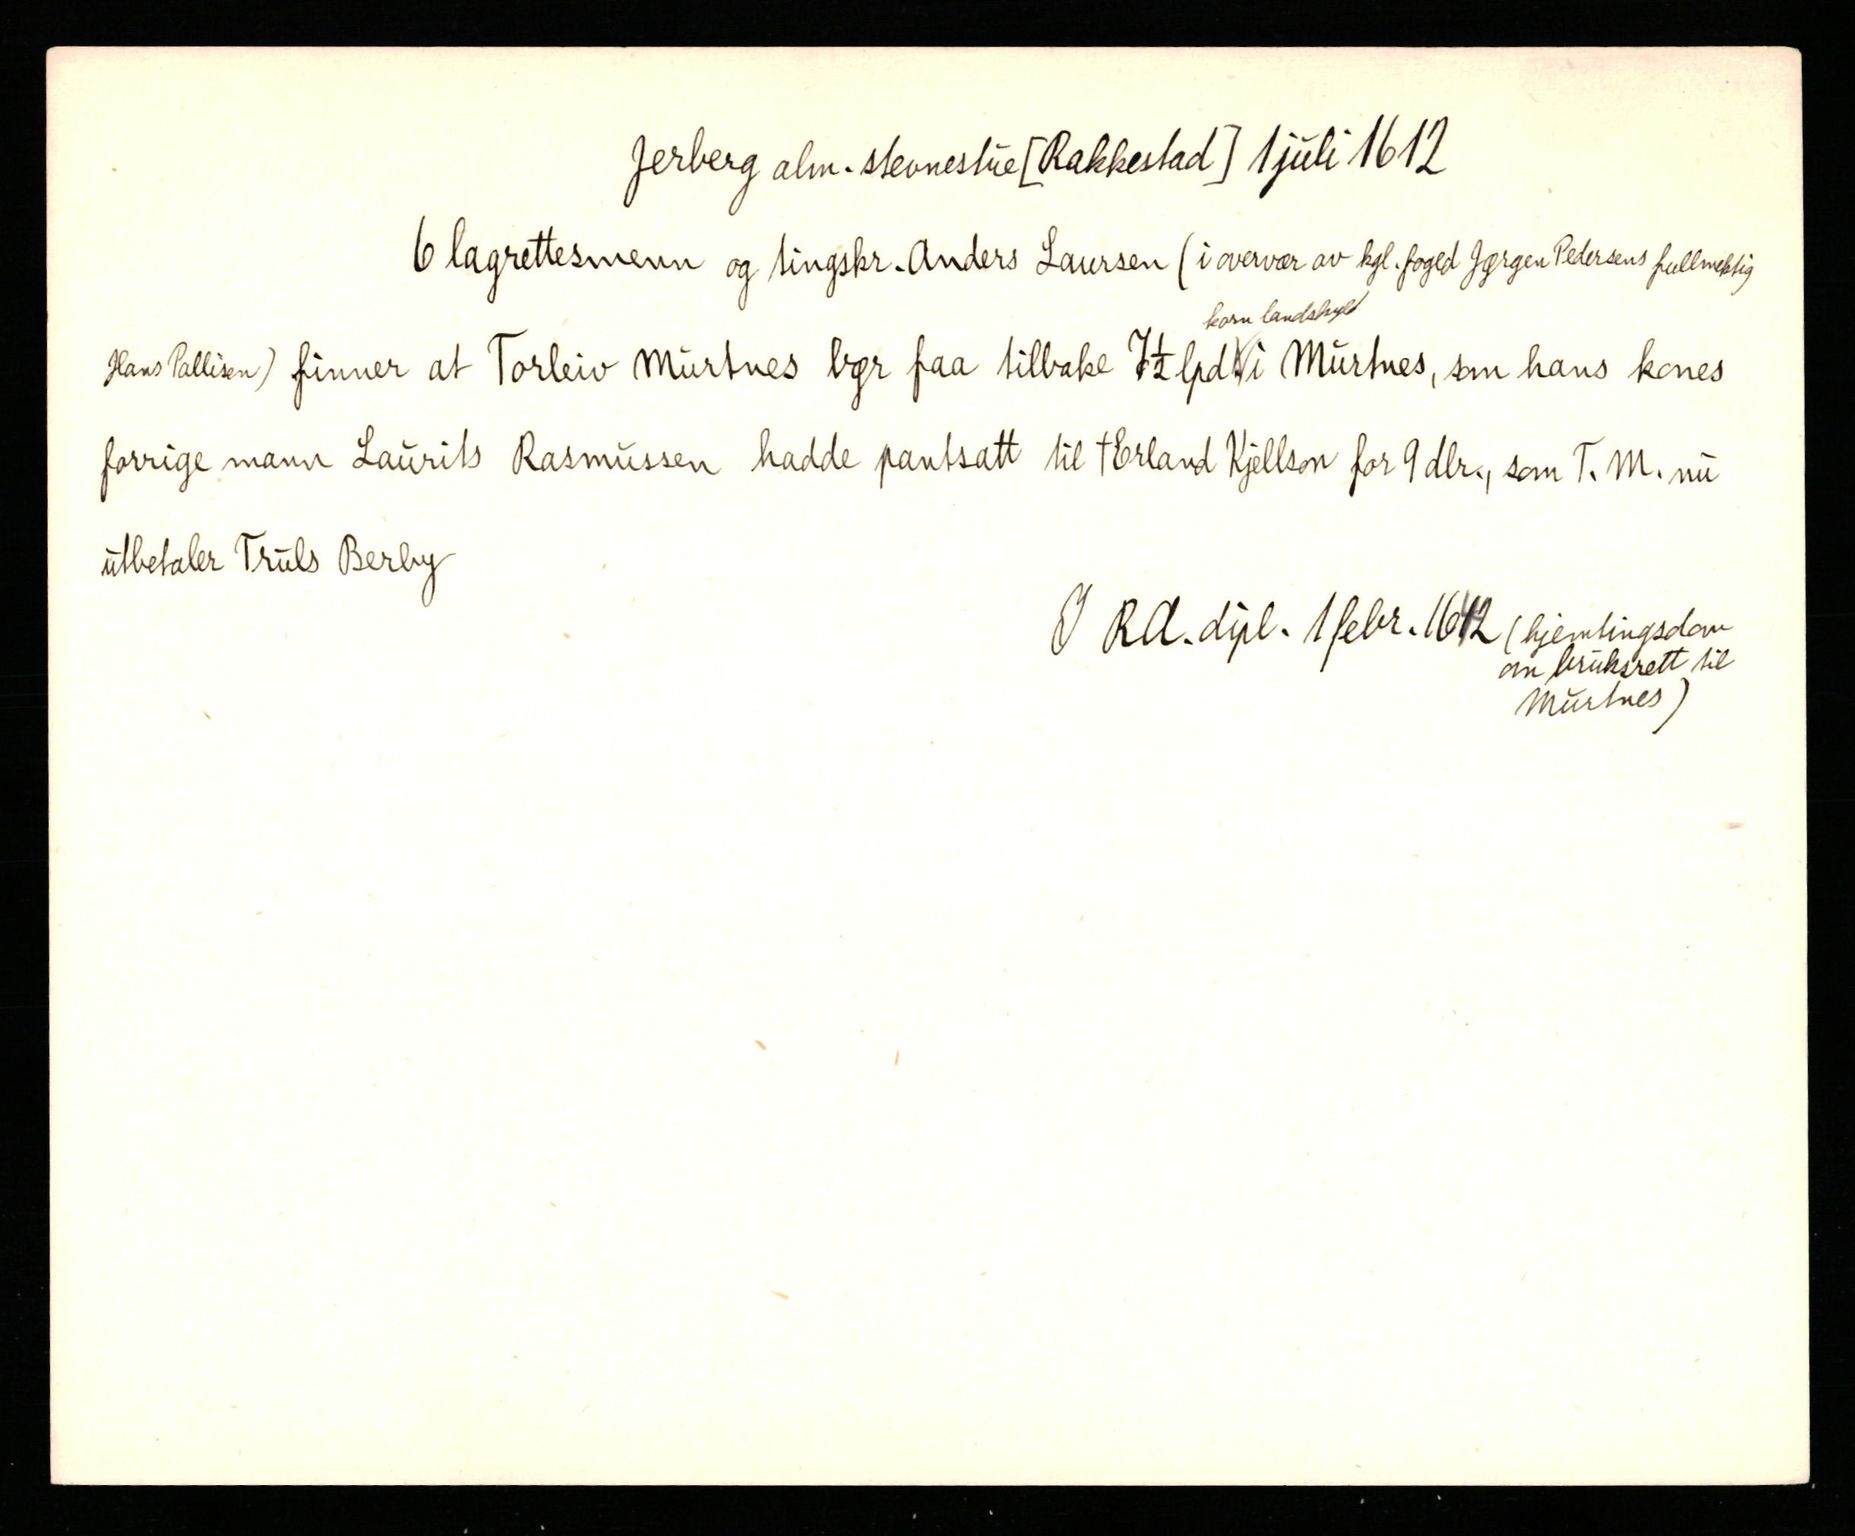 Jerberg alm. stevnestue [Rakkestad] 1 juli 1612
6 lagrettesmenn og tingskr. Anders Laursen (i overvær av kgl. foged Jørgen Pedersens fullmektig
Hans Pallisen) finner at Torleiv Murtnes bør faa tilbake 7½ lpd korn landskyld i Murtnes, som hans kones
forrige mann Laurits Rasmussen hadde pantsatt til †Erland Kjellson for 9 dlr., som T. M. nu
utbetaler Truls Berby
RA. dipl. 1 febr. 1612 (hjemtingsdom
om bruksrett til
Murtnes)